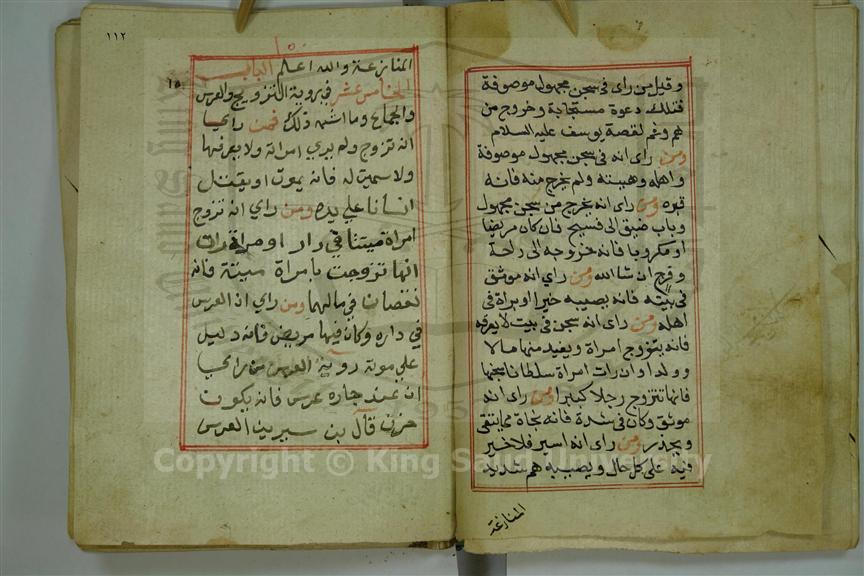 وقيل من راى في سجن مجهول موصوفة
فتلك دعوة مستجابة وخروج من
هم وغم لقصة يوسف عليه السلام
ومن راى انه في سجن مجهول موصوفة
واهله وهيئته ولم يخرج منه فانه
قبره ومن راى انه يخرج من سجن مجهول
وباب ضيق الى فسيح فان كان مريضا
او مكروبا فانه خروجه الى راحة
وفرج ان شا الله ومن راي انه موثق
في بيته فانه يصيبه خيرا او يراه في
اهله ومن راى انه سجن في بيت لا يعرفه
فانه يتزوج امراة ويفيد منها مالا
وولدا وان رات امراة سلطانا سجنها
فانها تتزوج رجلا كبيرا ومن راى انه
موثق وكان في شدة فانه نجاة مما يتقى
ويحذر ومن راى انه اسير فلا خير
فيه على كل حال ويصيبه هم شديد
المنازعة
١١٢
المنازعة والله اعلم الباب
الخامس عشر في روية التزويج والعرس
١٥
والجماع وما اشبه ذلك فمن راى
انه تزوج ولم يرى امراة ولا يعرفها
ولا سميت له فانه يموت او يقتل
انسانا على يده ومن راى انه تزوج
امراة ميتة في دار او مراة رات
انها تزوجت بامراة ميتة فانه
نقصان في مالهما ومن راى ان العرس
في داره وكان فيها مريض فانه دليل
على موته روية العرس من راى
ان عند جاره عرس فانه يكون
حزن قال بن سيرين العرس
Copyright © King Saud University